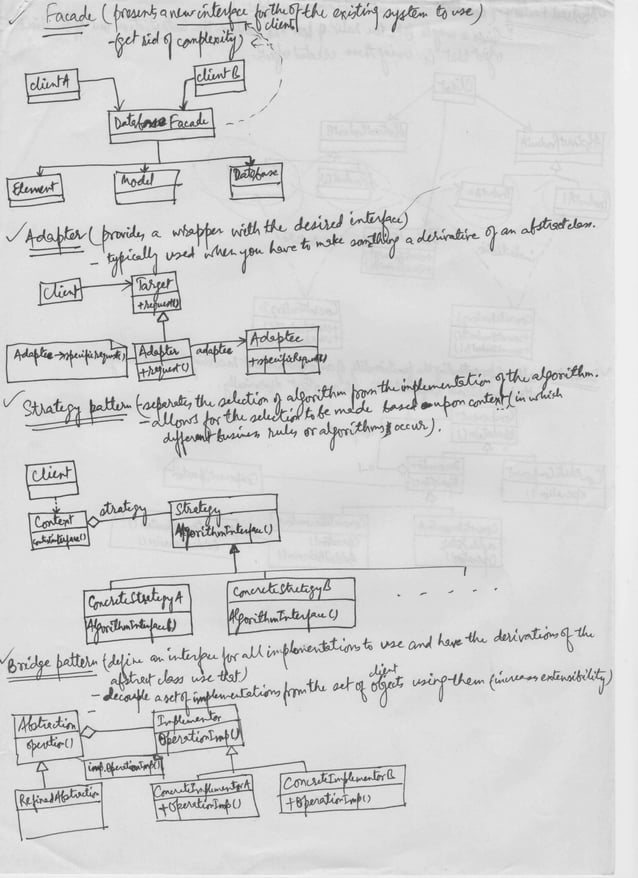 ✓ Facade (presents a new interface for the of the existing system to use)
client
- get rid of complexity)
clientA
clientB
Database Facade
Element
Model
Database
✓ Adapter (provides a wrapper with the desired interface)
- typically used when you have to make something a derivative of an abstract class.
Client
Target
+request()
Adaptee→specificRequest()
Adapter
+request()
adaptee
Adaptee
+specificRequest()
✓ Strategy pattern (-separates the selection of algorithm from the implementation of the algorithm.
- allows for the selection to be made based upon context (in which
different business rules or algorithms occur).
Client
Context
strategy
Strategy
AlgorithmInterface()
ConcreteStrategyA
AlgorithmInterface()
ConcreteStrategyB
AlgorithmInterface()
- - - - - -
✓ Bridge pattern (define an interface for all implementations to use and have the derivations of the
abstract class use that)
- decouple a set of implementations from the set of client objects using them (increases extensibility)
Abstraction
operation()
Implementor
OperationImp()
imp.OperationImp()
RefinedAbstraction
ConcreteImplementorA
+OperationImp()
ConcreteImplementorB
+OperationImp()